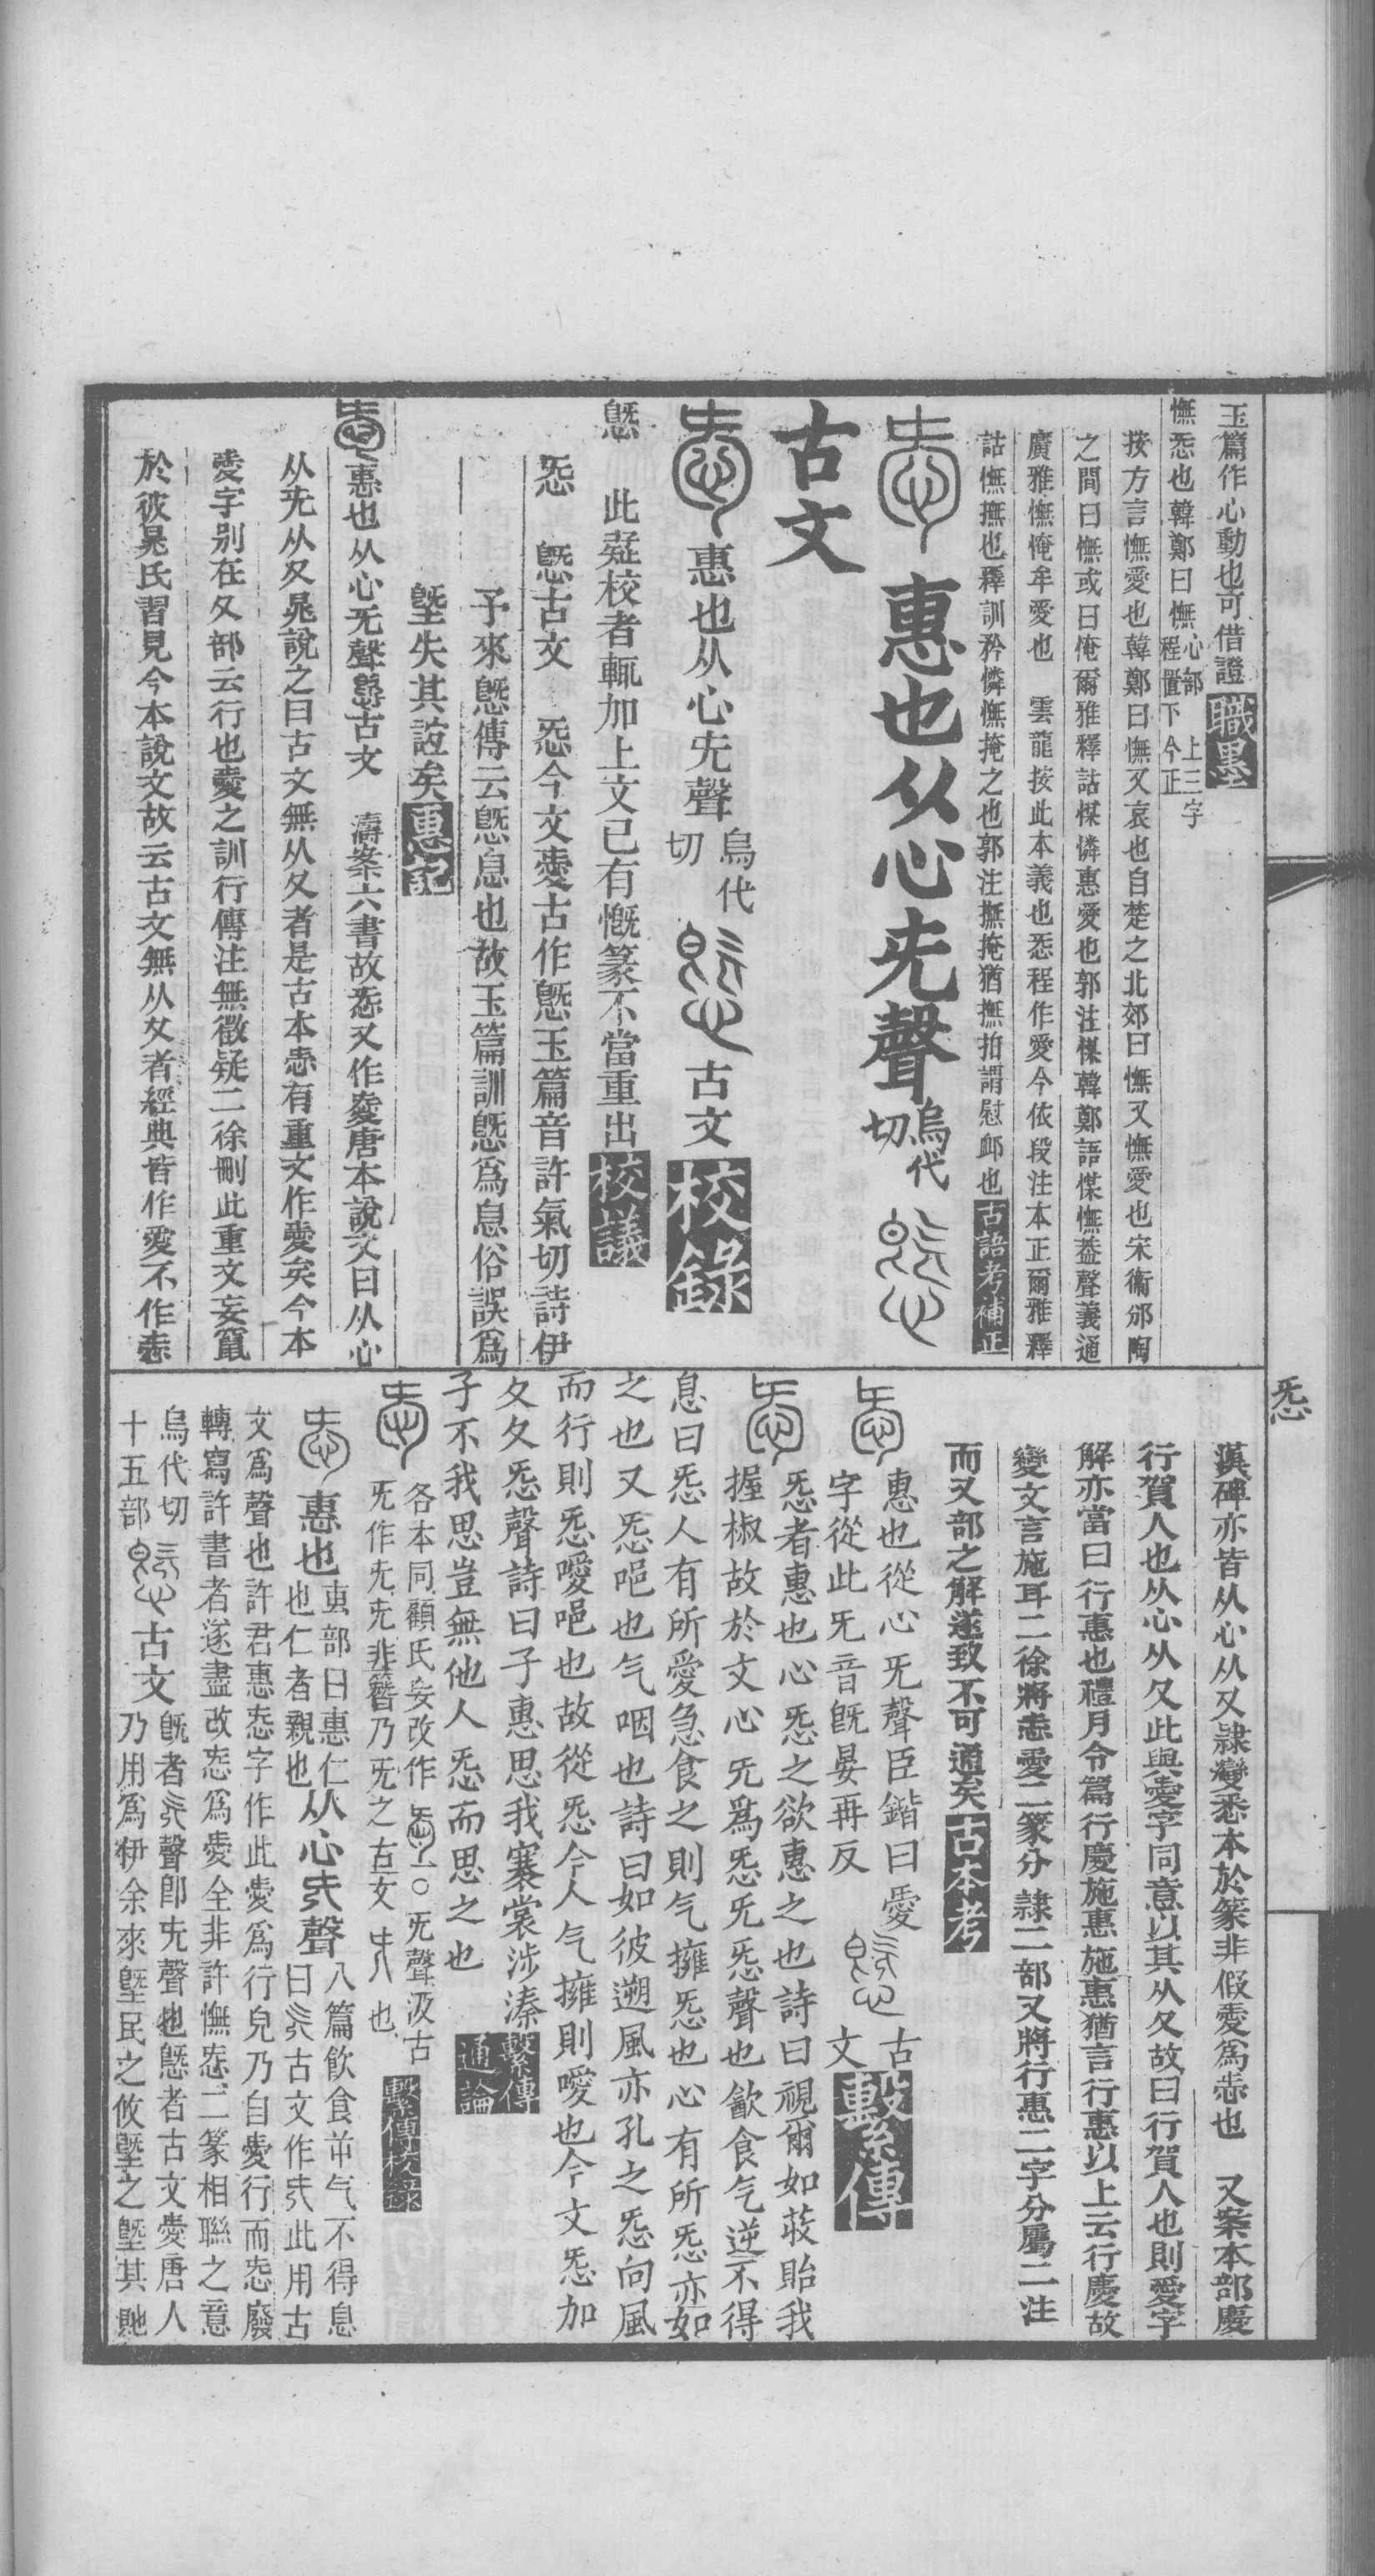 玉篇作心動也可借證 職墨
憮㤅也韓鄭曰憮 心部程置下 上三字今正
按方言憮愛也韓鄭曰憮又哀也自楚之北郊曰憮又憮愛也宋衞邠陶
之間曰憮或曰㤿爾雅釋詁煤憐惠愛也郭注煤韓鄭語煤憮葢聲義通
廣雅憮㤿牟愛也 雲龍按此本義也㤅程作愛今依段注本正爾雅釋
詁憮撫也釋訓矜憐憮掩之也郭注撫掩猶撫拍謂慰卹也 古語考補正
惠也从心旡聲 烏代切
古文
惠也从心旡聲 烏代切 古文 校錄
㥶 此疑校者輒加上文已有慨篆不當重出 校議
㤅 㥶古文 㤅今文愛古作㥶玉篇音許氣切詩伊
予來㥶傳云㥶息也故玉篇訓㥶爲息俗誤爲
墍失其恉矣 惠記
惠也从心旡聲㥶古文 濤案六書故㤅又作愛唐本說文曰从心
从旡从夂晁說之曰古文無从夂者是古本㤅有重文作愛矣今本
愛字別在夂部云行也愛之訓行傳注無徵疑二徐刪此重文妄竄
於彼晁氏習見今本說文故云古文無从夂者經典皆作愛不作㤅
㤅
漢碑亦皆从心从夂隸變悉本於篆非假愛爲㤅也 又案本部慶
行賀人也从心从夂此與愛字同意以其从夂故曰行賀人也則愛字
解亦當曰行惠也禮月令篇行慶施惠施惠猶言行惠以上云行慶故
變文言施耳二徐將㤅愛二篆分隸二部又將行惠二字分屬二注
而夂部之解遂致不可通矣 古本考
惠也從心旡聲臣鍇曰愛
字從此旡音旣晏再反 古文 繫傳
㤅者惠也心㤅之欲惠之也詩曰視爾如荍貽我
握椒故於文心旡爲㤅旡㤅聲也歙食气逆不得
息曰㤅人有所愛急食之則气擁㤅也心有所㤅亦如
之也又㤅唈也气咽也詩曰如彼遡風亦孔之㤅向風
而行則㤅噯唈也故從㤅今人气擁則噯也今文㤅加
夂夂㤅聲詩曰子惠思我褰裳涉溱
子不我思豈無他人㤅而思之也 繫傳通論
各本同顧氏妄改作 〇旡聲汲古
旡作旡旡非簪乃旡之古文 也 繫傳校錄
惠也 叀部曰惠仁也仁者親也 从心旡聲 八篇飲食屰气不得息
曰 古文作旡此用古
文爲聲也許君惠㤅字作此愛爲行皃乃自愛行而㤅廢
轉寫許書者遂盡改㤅爲愛全非許憮㤅二篆相聯之意
烏代切
十五部 古文 旣者 聲卽旡聲也㥶者古文愛唐人
乃用爲伊余來墍民之攸墍之墍其